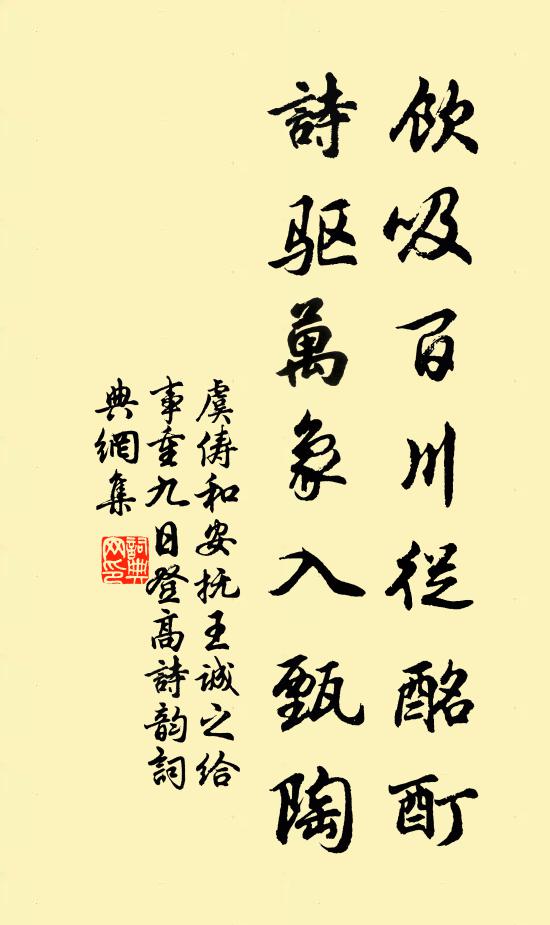 飲吸百川從酩酊
詩驱萬象入甄陶
虞俦和安抚王诚之给
事重九日登高詩韵詞
典網集
詞典
网印